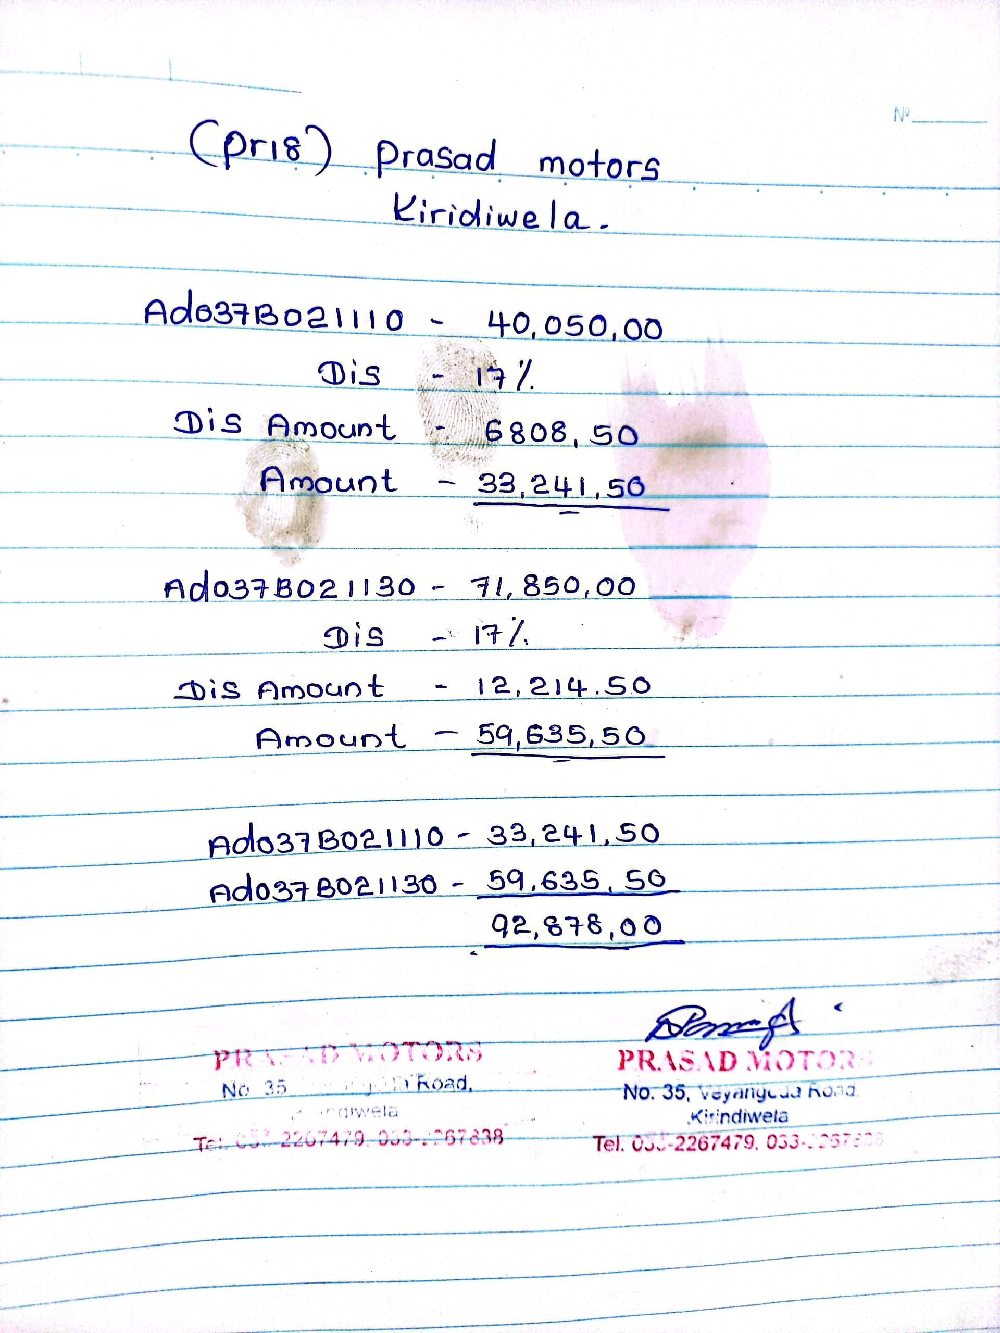 Nº
(pr18) Prasad motors
Kiridiwela.
Ado37B021110 - 40,050,00
Dis - 17%
Dis Amount - 6808,50
Amount - 33,241,50
Ado37B021130 - 71,850,00
Dis - 17%
Dis Amount - 12,214.50
Amount - 59,635,50
Ado37B021110 - 33,241,50
Ado37B021130 - 59,635,50
92,878,00
MOTORS
No 35 Road,
Tel. 2267479,
PRASAD MOTORS
No. 35, Veyangoda Road,
Kirindiwela
Tel. 033-2267479, 033-